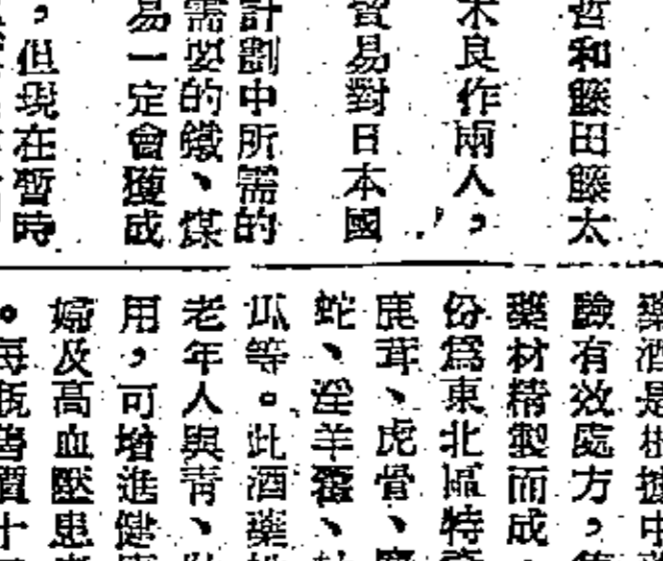 哲和藤田藤太
木良作兩人，
貿易對日本國
計劃中所需的
需要的鐵、煤
易一定會獲成
，但現在暫時
藥酒是根據中
驗有效處方，
藥材精製而成
份爲東北區特產
鹿茸、虎骨、
蛇、淫羊藿、
瓜等。此酒藥
老年人與靑、
用，可增進健
婦及高血壓患
。每瓶售價十